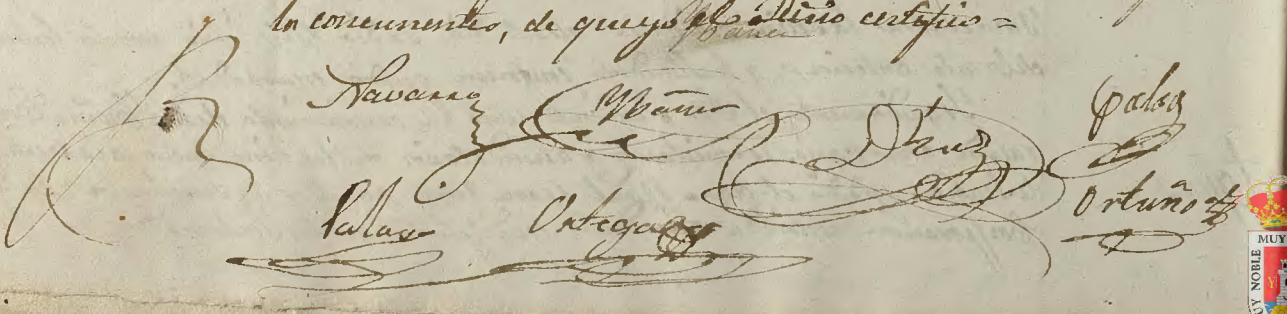 los concurrentes, de que yo el Sriño certifico =
Navarro Ybañez Diaz Palao
Palao Ortega Ortuño
MUY
MUY NOBLE